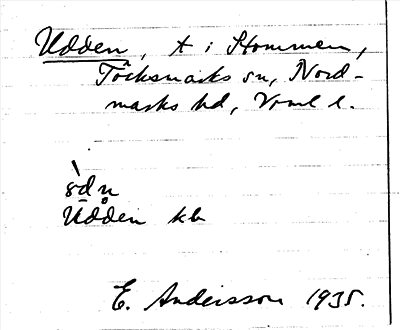 Udden, t i Hommen,
Töcksmarks sn, Nord-
marks hd, Vrml l.
Udden kb
E. Andersson 1935.